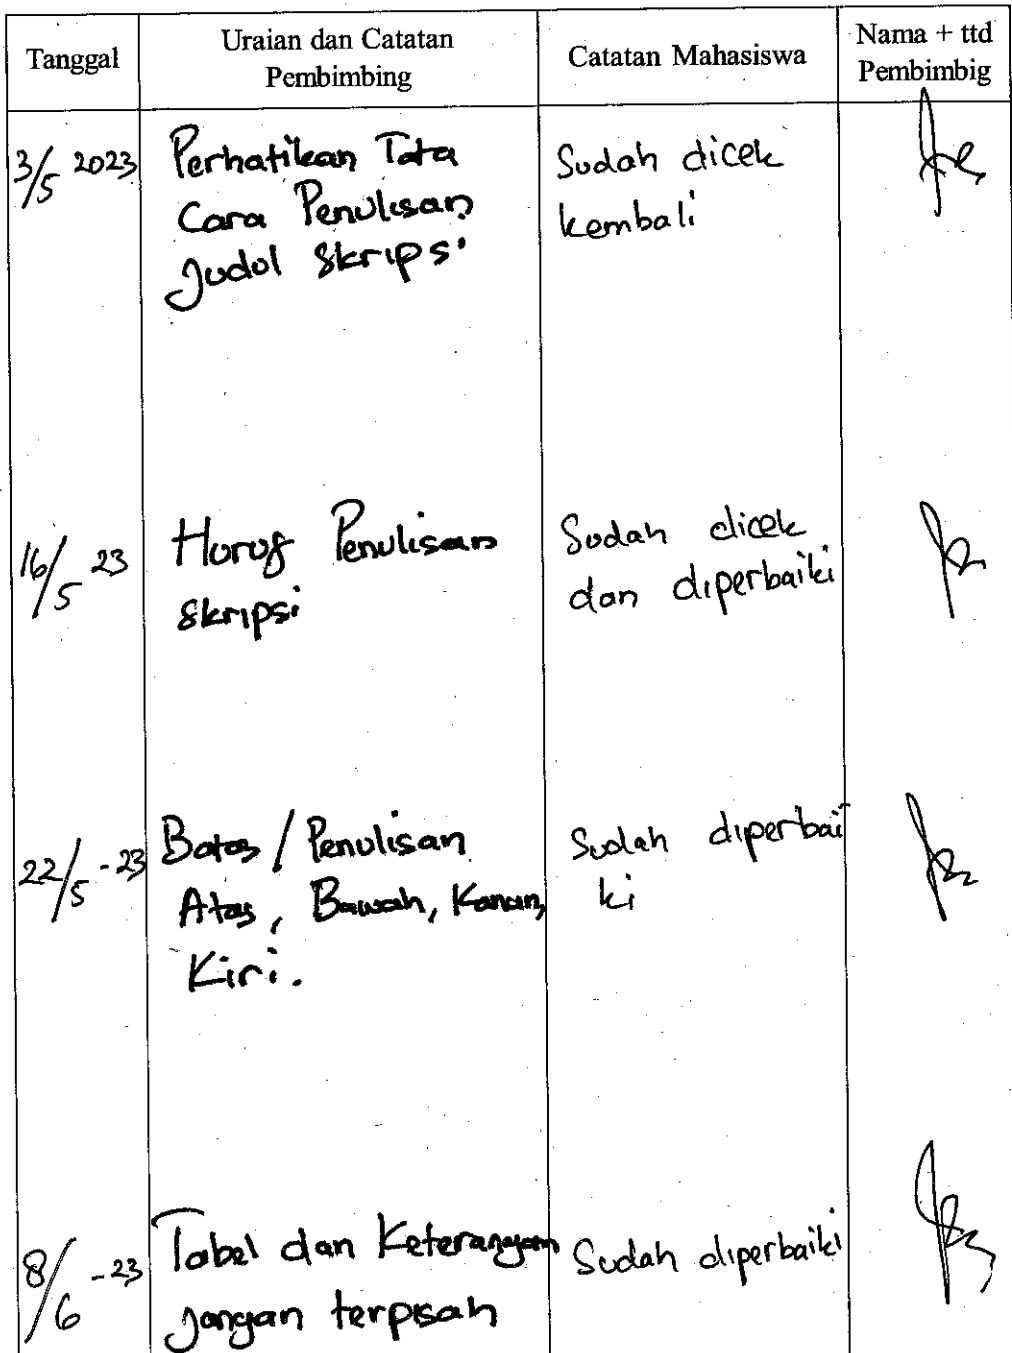 Tanggal
Uraian dan Catatan
Pembimbing
Catatan Mahasiswa
Nama + ttd
Pembimbig
3/5 2023
Perhatikan Tata
Cara Penulisan
Judul Skripsi
Sudah dicek
kembali
16/5 23
Huruf Penulisan
Skripsi
Sudah dicek
dan diperbaiki
22/5 - 23
Batas / Penulisan
Atas, Bawah, Kanan,
Kiri.
Sudah diperbai
ki
8/6 - 23
Tabel dan Keterangan
Jangan terpisah
Sudah diperbaiki